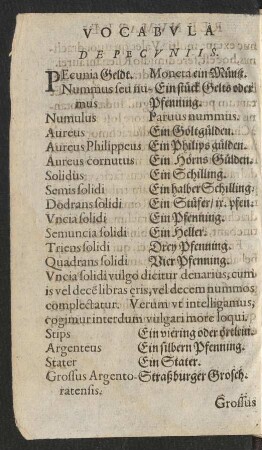 VOCABVLA
DE PECVNIIS.
PEcunia Geldt. Moneta ein Müntz.
Nummus seu nu- Ein stück Gelts oder
mus Pfenning.
Numulus Paruus nummus.
Aureus Ein Goltgülden.
Aureus Philippeus Ein Philips gülden.
Aureus cornutus Ein Horns Gülden.
Solidus Ein Schilling.
Semis solidi Ein halber Schilling.
Dodrans solidi Ein Stüfer/ ix. pfen.
Vncia solidi Ein Pfenning.
Semuncia solidi Ein Heller.
Triens solidi Drey Pfenning.
Quadrans solidi Vier Pfenning.
Vncia solidi vulgo dicitur denarius, cum
is vel decē libras ęris, vel decem nummos
complectatur. Verùm vt intelligamus,
cogimur interdum vulgari more loqui.
Stips Ein viering oder örtlein.
Argenteus Ein silbern Pfenning.
Stater Ein Stater.
Grossus Argento- Straßburger Grosch.
ratensis.
Grossus